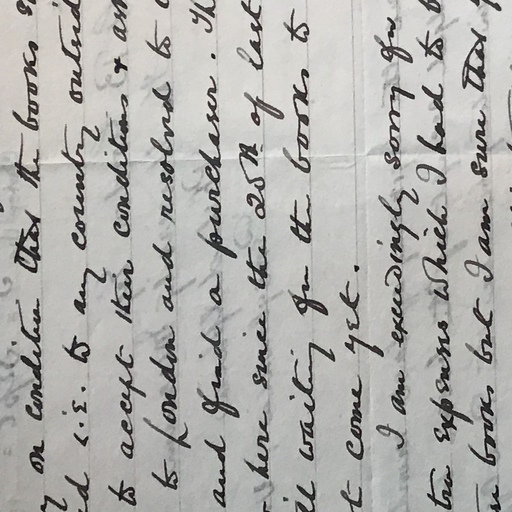 on condition that the books
i.e. to any country outsid
to accept their conditions & as
to London and resolved to
and find a purchaser. Th
here since the 25th of last
waiting for the books to
come yet.
I am exceedingly sorry for
expenses which I had to b
books but I am sure that